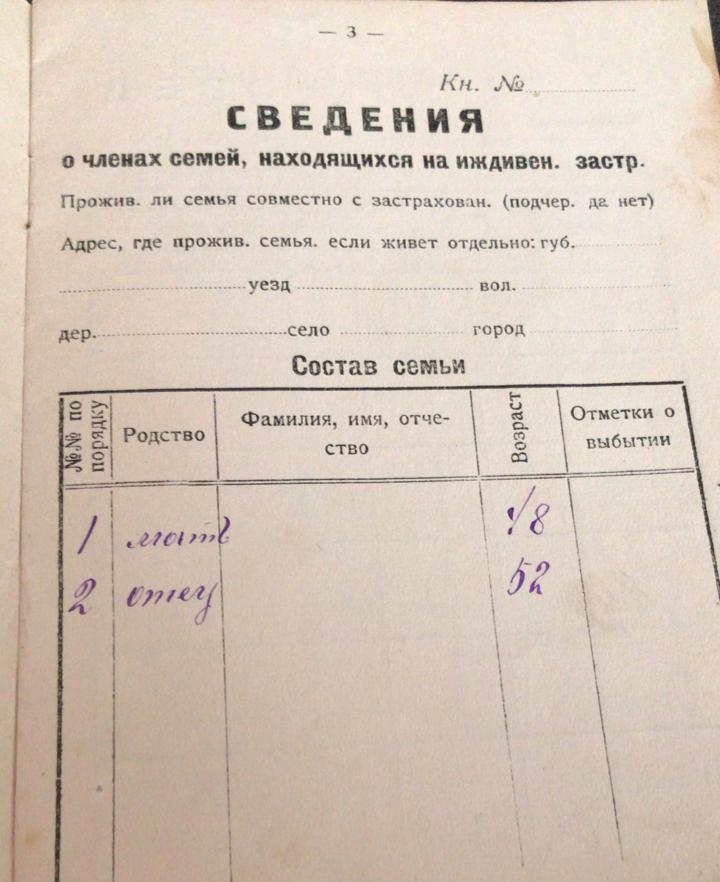 — 3 —
Кн. №
СВЕДЕНИЯ
о членах семей, находящихся на иждивен. застр.
Прожив. ли семья совместно с застрахован. (подчер. да нет)
Адрес, где прожив. семья. если живет отдельно: губ.
уезд вол.
дер. село город
Состав семьи
№№ по порядку Родство Фамилия, имя, отче-ство Возраст Отметки о выбытии
1 мать 48
2 отец 52